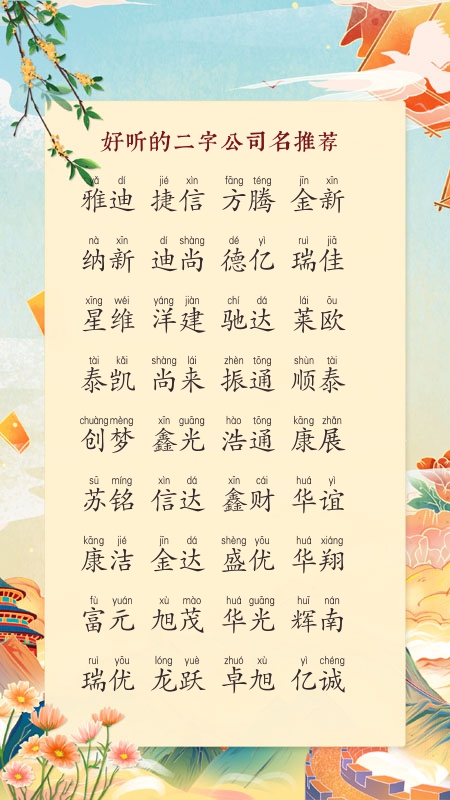 好听的二字公司名推荐
yǎ dí jié xìn fāng téng jīn xīn
雅迪 捷信 方腾 金新
nà xīn dí shàng dé yì ruì jiā
纳新 迪尚 德亿 瑞佳
xīng wéi yáng jiàn chí dá lái ōu
星维 洋建 驰达 莱欧
tài kǎi shàng lái zhèn tōng shùn tài
泰凯 尚来 振通 顺泰
chuàng mèng xīn guāng hào tōng kāng zhǎn
创梦 鑫光 浩通 康展
sū míng xìn dá xīn cái huá yì
苏铭 信达 鑫财 华谊
kāng jié jīn dá shèng yōu huá xiáng
康洁 金达 盛优 华翔
fù yuán xù mào huá guāng huī nán
富元 旭茂 华光 辉南
ruì yōu lóng yuè zhuó xù yì chéng
瑞优 龙跃 卓旭 亿诚